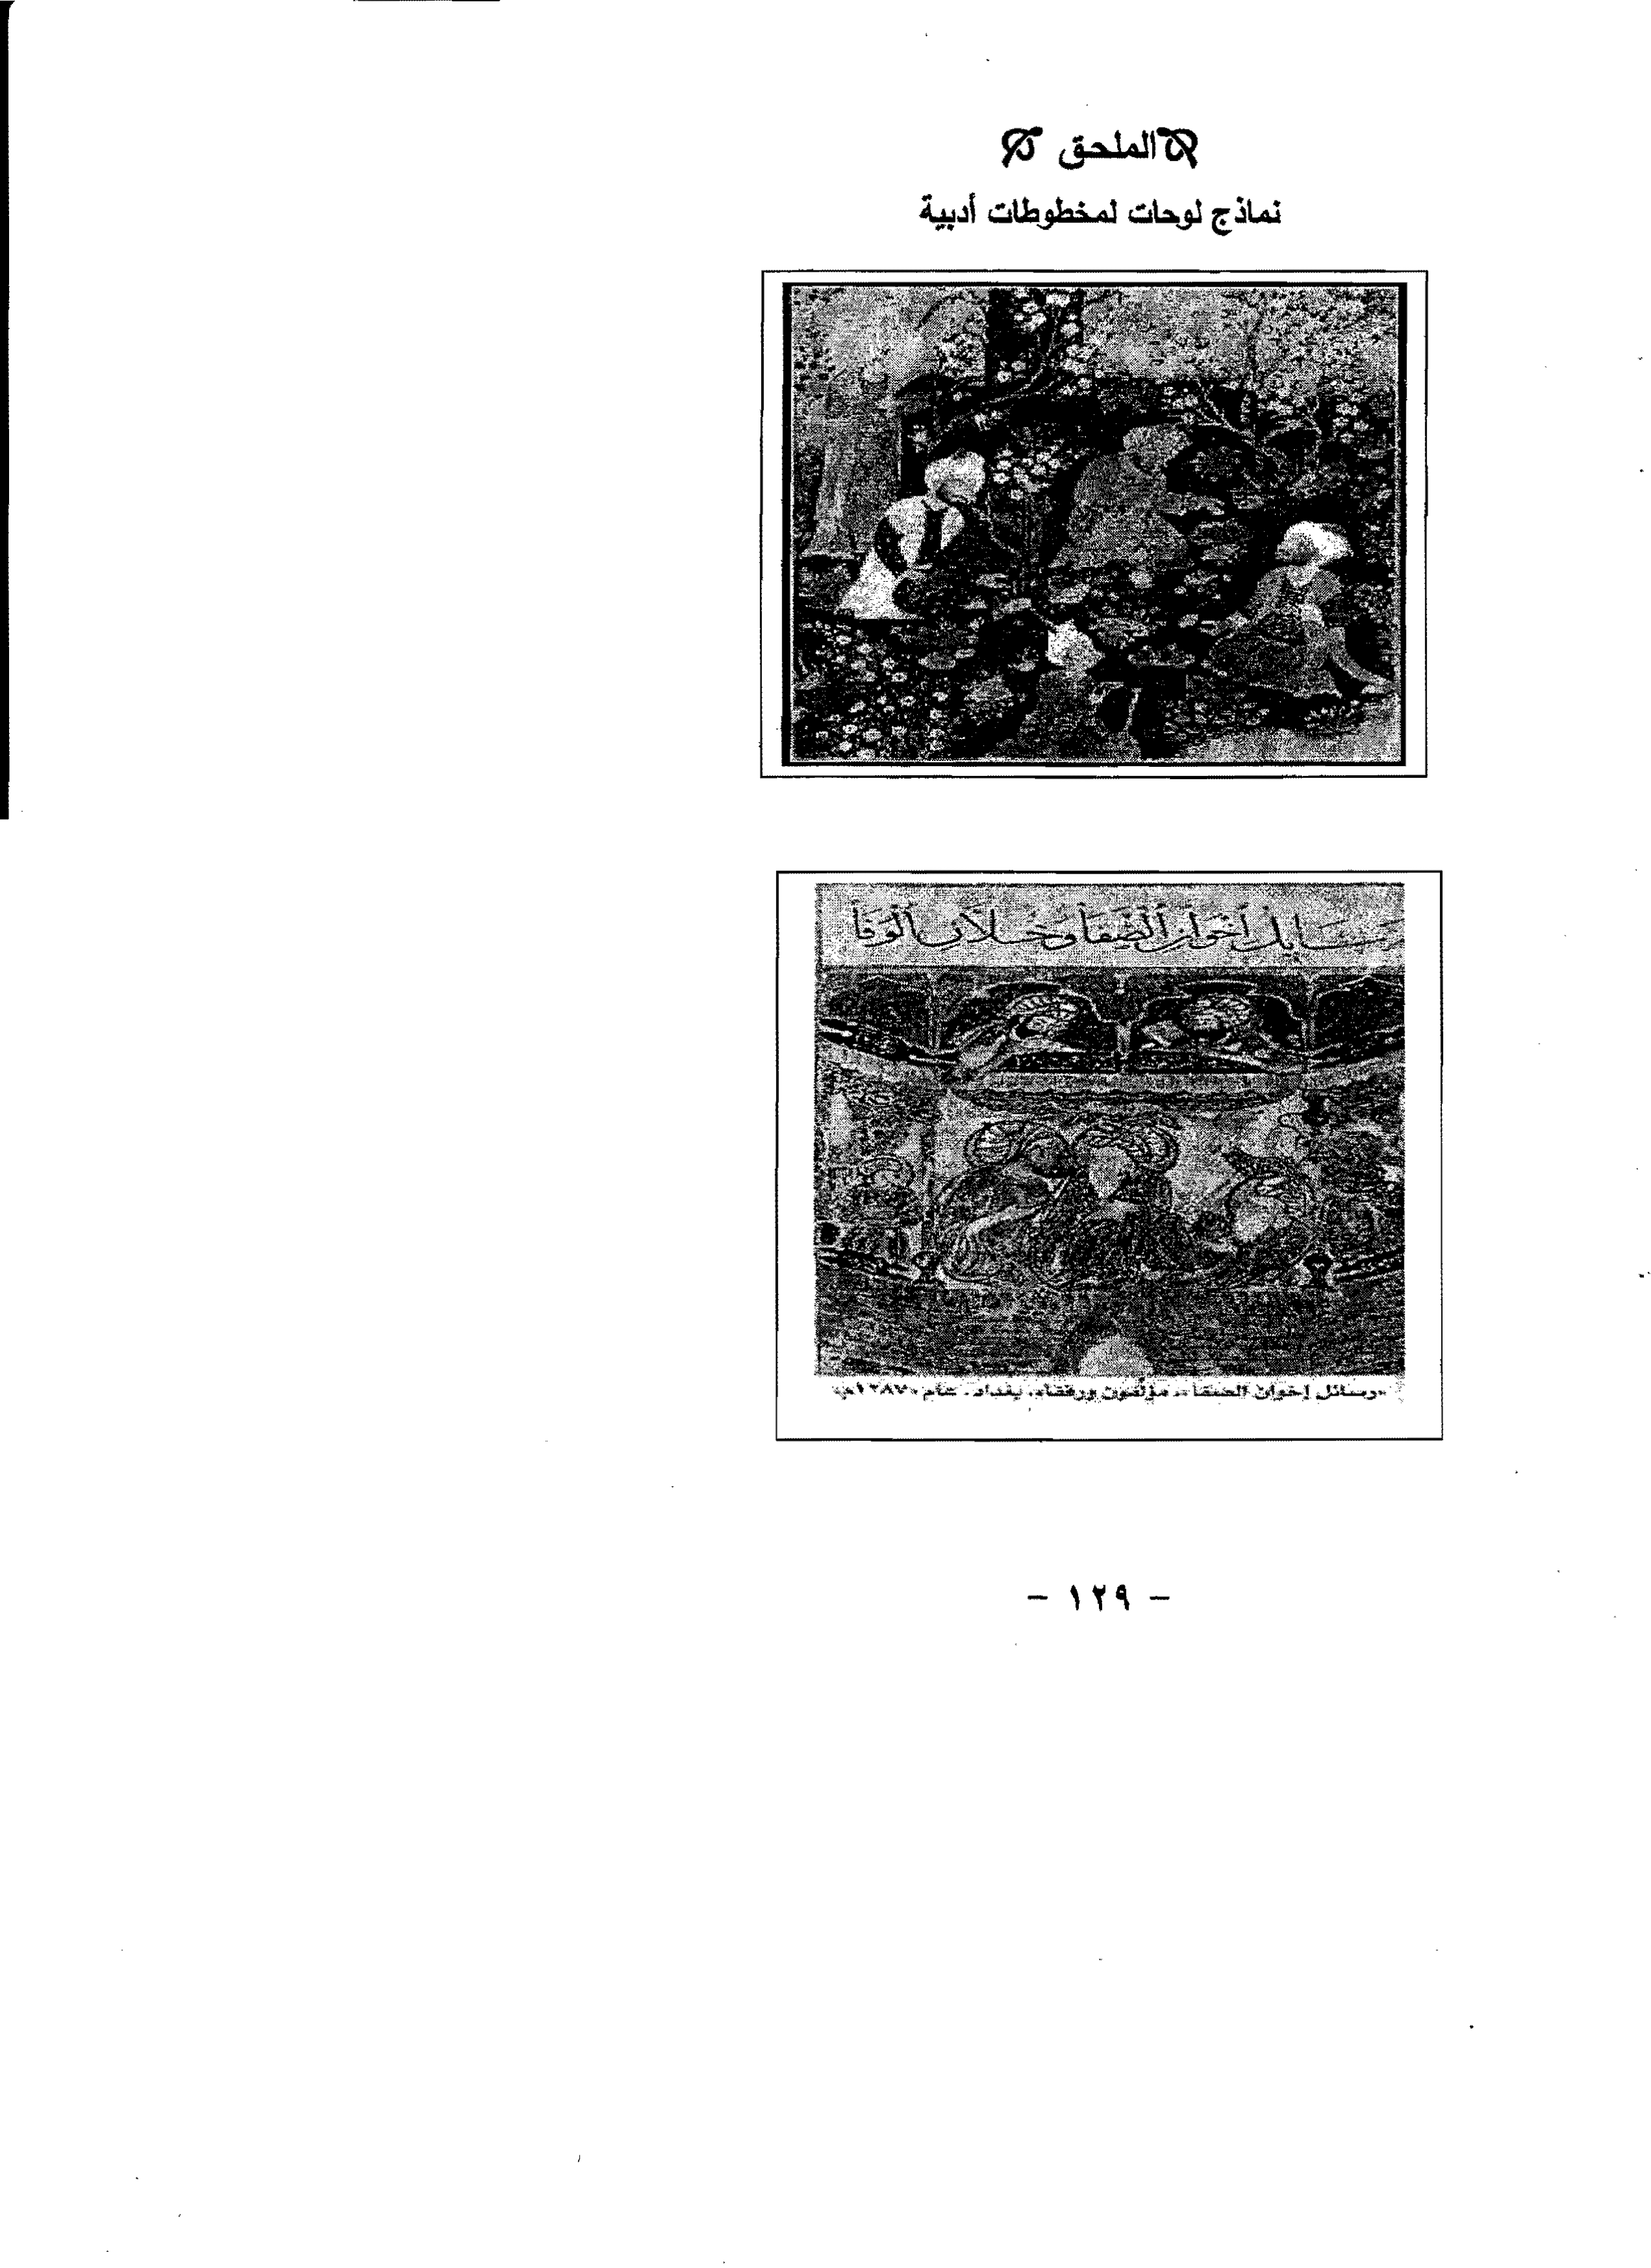 الملحق
نماذج لوحات لمخطوطات أدبية
رسائل اخوان الصفا وخلان الوفا
«رسائل إخوان الصفا»، مؤلفون ورفقاء، بغداد، عام ١٢٨٧م
- ١٢٩ -